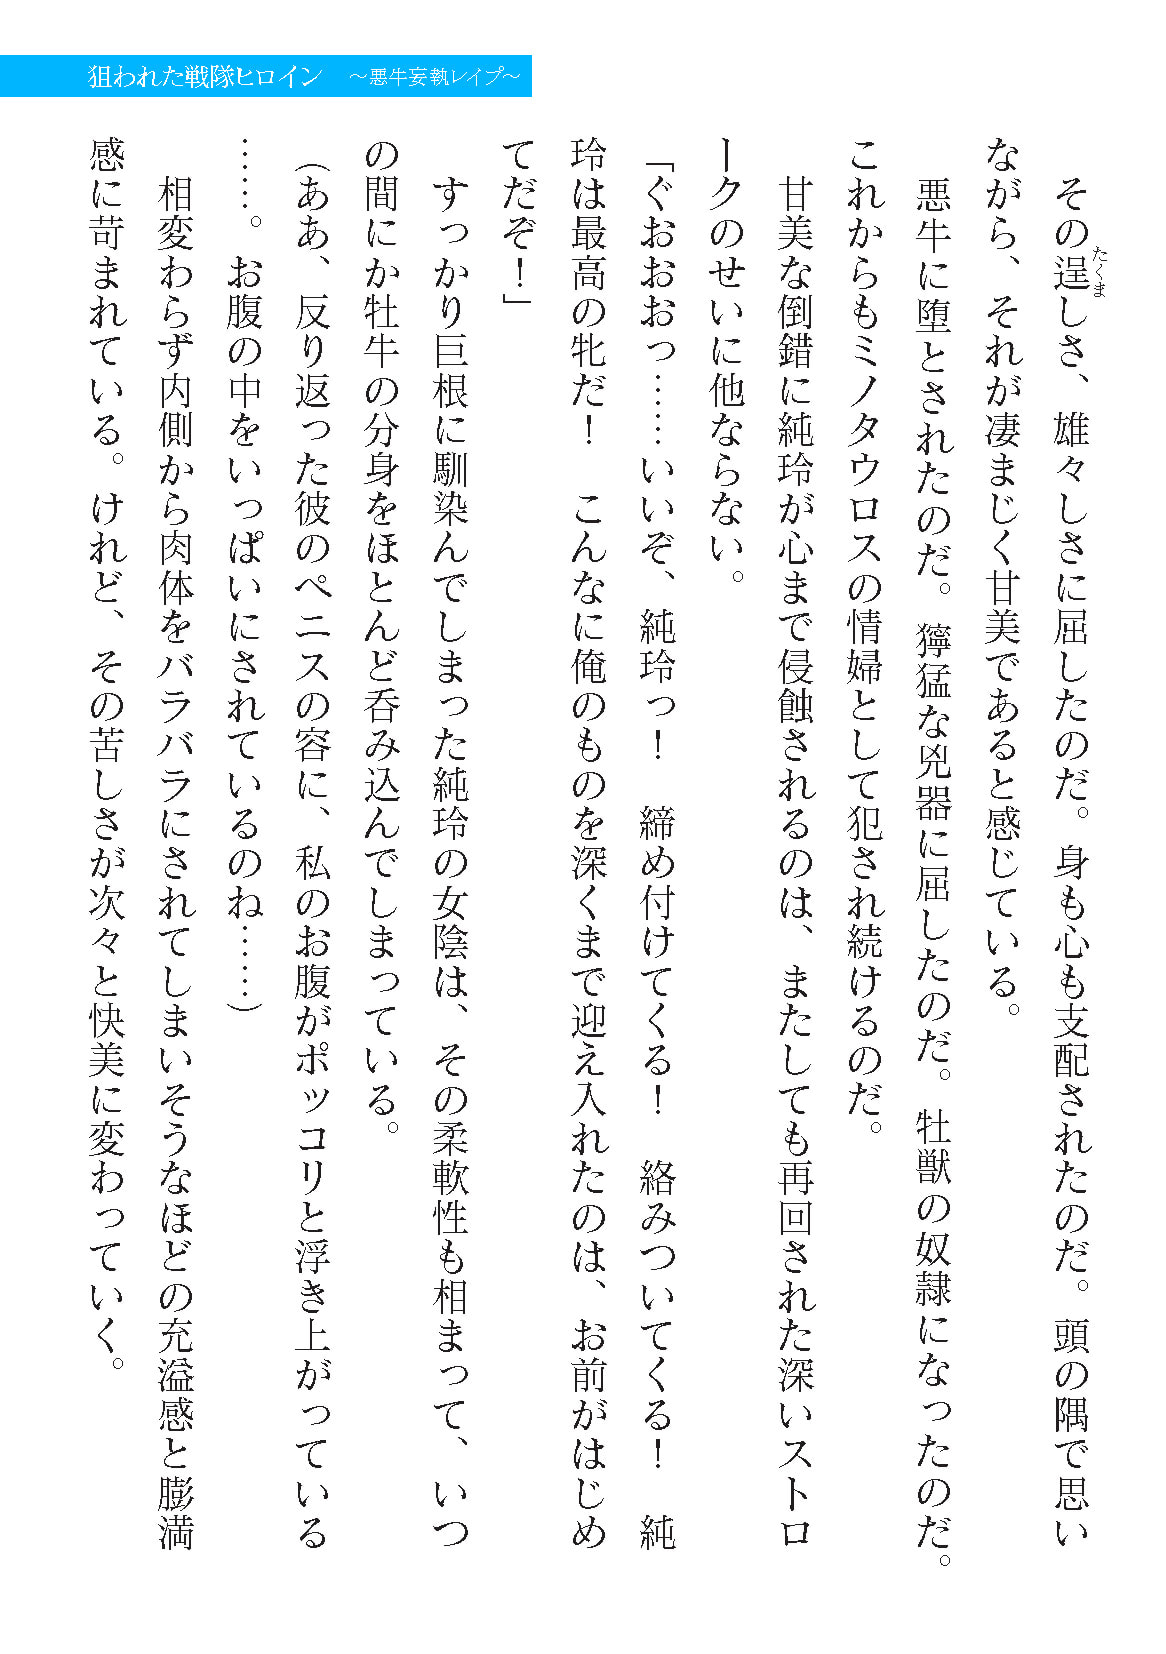 狙われた戦隊ヒロイン ～悪牛妄執レイプ～
その逞しさ、雄々しさに屈したのだ。身も心も支配されたのだ。頭の隅で思い
たくま
ながら、それが凄まじく甘美であると感じている。
悪牛に堕とされたのだ。獰猛な兇器に屈したのだ。牡獣の奴隷になったのだ。
これからもミノタウロスの情婦として犯され続けるのだ。
甘美な倒錯に純玲が心まで侵蝕されるのは、またしても再回された深いストロ
ークのせいに他ならない。
「ぐおおおっ……いいぞ、純玲っ！　締め付けてくる！　絡みついてくる！　純
玲は最高の牝だ！　こんなに俺のものを深くまで迎え入れたのは、お前がはじめ
てだぞ！」
すっかり巨根に馴染んでしまった純玲の女陰は、その柔軟性も相まって、いつ
の間にか牡牛の分身をほとんど呑み込んでしまっている。
（ああ、反り返った彼のペニスの容に、私のお腹がポッコリと浮き上がっている
……。お腹の中をいっぱいにされているのね……）
相変わらず内側から肉体をバラバラにされてしまいそうなほどの充溢感と膨満
感に苛まれている。けれど、その苦しさが次々と快美に変わっていく。